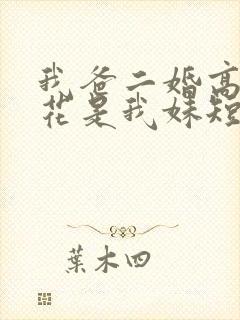 我爸二婚高
花是我妹短
葉木四